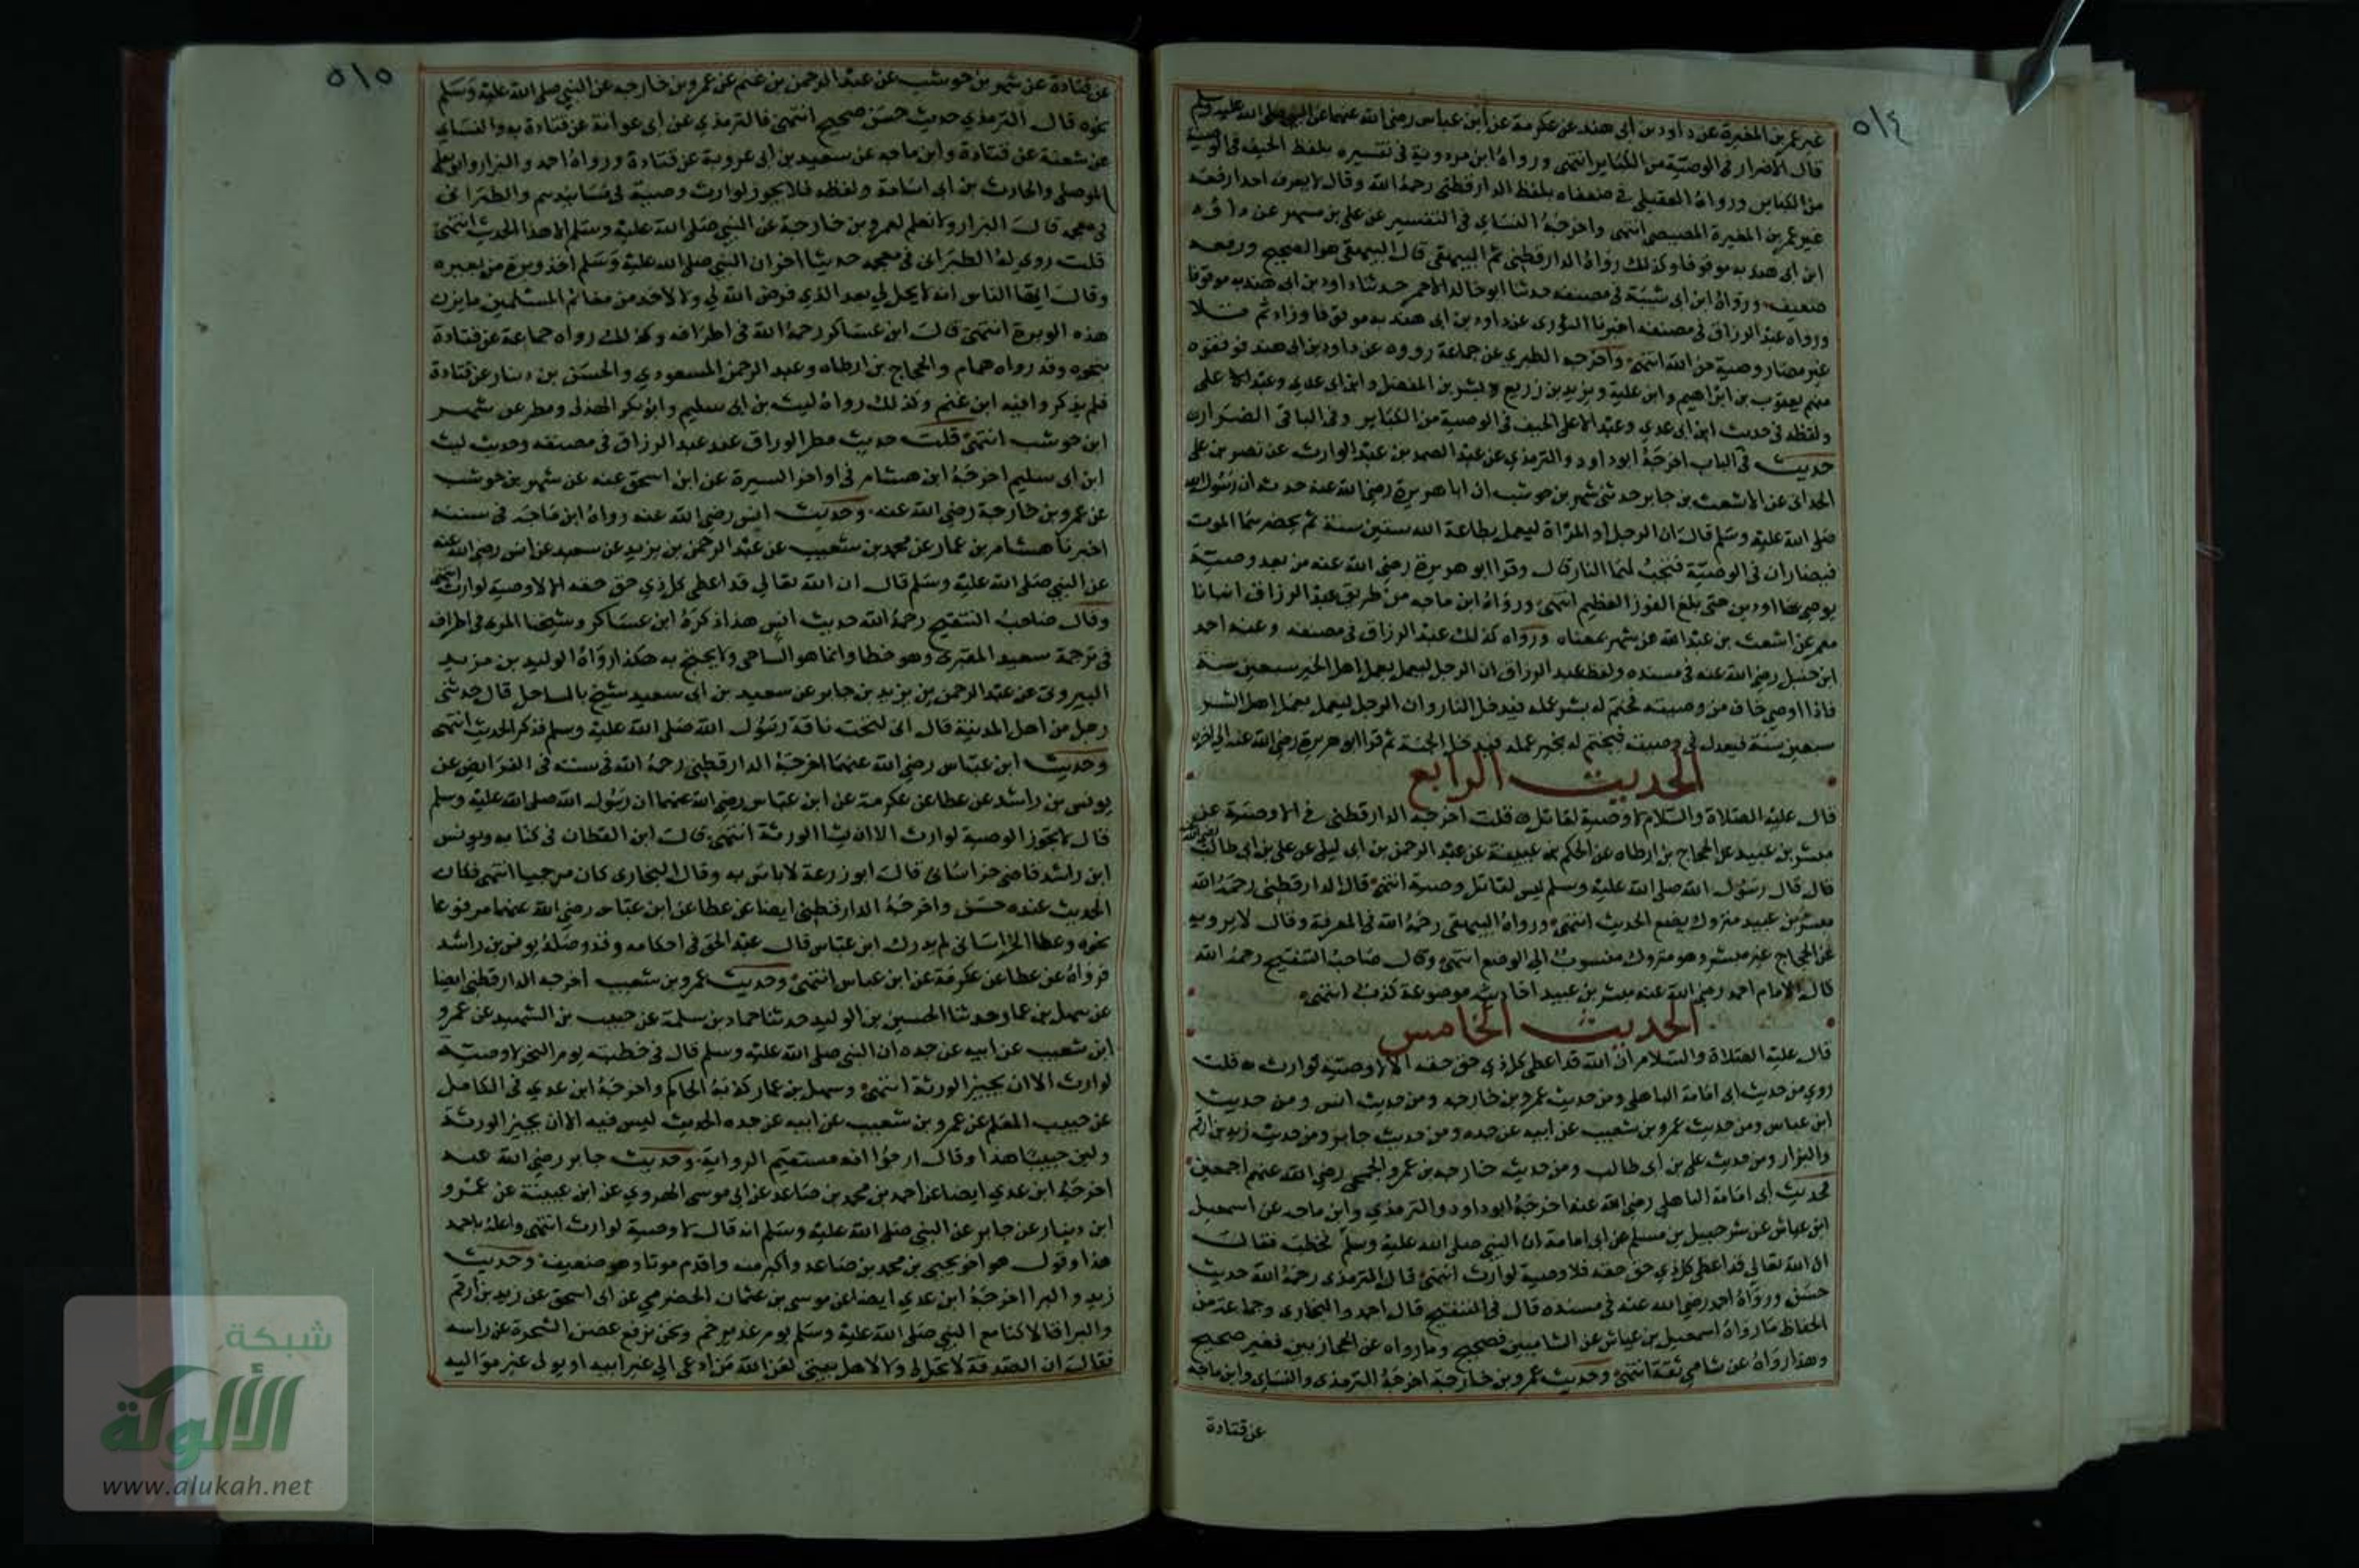 ٥١٤
غير عمر بن المغيرة عن داود بن ابى هند عن عكرمة عن ابن عباس رضى الله عنهما عن النبى صلى الله عليه وسلم
قال الاضرار فى الوصية من الكباير انتهى ورواه ابن مردوية فى تفسيره بلفظ الحيف فى الوصية
من الكباير ورواه العقيلى فى ضعفاه بلفظ الدارقطنى رحمه الله وقال لا يعرف احدا رفعه
غير عمر بن المغيرة المصيصى انتهى واخرجه النساى فى التفسير عن على بن مسهر عن داود
ابن ابى هند به موقوفا وكذلك رواه الدارقطنى ثم البيهقى قال البيهقى هو الصحيح ورفعه
ضعيف ورواه ابن ابى شيبة فى مصنفه حدثنا ابو خالد الاحمر حدثنا داود بن ابى هند به موقوفا
ورواه عبد الرزاق فى مصنفه اخبرنا الثورى عن داود بن ابى هند به موقوفا وزاد ثم تلا
غير مضار وصية من الله انتهى واخرجه الطبرى عن جماعة رووه عن داود بن ابى هند فوقفوه
منهم يعقوب بن ابراهيم وابن علية ويزيد بن زريع وبشر بن المفضل وابن ابى عدى وعبد الاعلى
ولفظه فى حديث ابن ابى عدى وعبد الاعلى الحيف فى الوصية من الكباير وفى الباقى الضرار
حديث فى الباب اخرجه ابو داود والترمذى عن عبد الصمد بن عبد الوارث عن نصر بن على
الحدانى عن الاشعث بن جابر حدثنى شهر بن حوشب ان ابا هريرة رضى الله عنه حدثه ان رسول الله
صلى الله عليه وسلم قال ان الرجل او المراة ليعمل بطاعة الله ستين سنة ثم يحضرهما الموت
فيضاران فى الوصية فتجب لهما النار قال وقرا ابو هريرة رضى الله عنه من بعد وصية
يوصى بها او دين حتى بلغ الفوز العظيم انتهى ورواه ابن ماجه من طريق عبد الرزاق انبانا
معمر عن اشعث بن عبد الله عن شهر بمعناه ورواه كذلك عبد الرزاق فى مصنفه وعنه احمد
ابن حنبل رضى الله عنه فى مسنده ولفظ عبد الرزاق ان الرجل ليعمل بعمل اهل الخير سبعين سنة
فاذا اوصى حاف من وصيته فختم له بشر عمله فيدخل النار وان الرجل ليعمل بعمل اهل الشر
سبعين سنة فيعدل فى وصيته فيختم له بخير عمله فيدخل الجنة ثم قرا ابو هريرة رضى الله عنه الى اخره
الحديث الرابع
قال عليه الصلاة والسلام لا وصية لقاتل قلت اخرجه الدارقطنى فى الاوصية عن
مبشر بن عبيد عن الحجاج بن ارطاه عن الحكم بن عيينة عن عبد الرحمن بن ابى ليلى عن على بن ابى طالب رضى الله عنه
قال قال رسول الله صلى الله عليه وسلم ليس لقاتل وصية انتهى قال الدارقطنى رحمه الله
مبشر بن عبيد متروك يضع الحديث انتهى ورواه البيهقى رحمه الله فى المعرفة وقال لا يرويه
عن الحجاج غير مبشر وهو متروك منسوب الى الوضع انتهى وقال صاحب التنقيح رحمه الله
قال الامام احمد رضى الله عنه مبشر بن عبيد احاديثه موضوعة كذب انتهى
الحديث الخامس
قال عليه الصلاة والسلام ان الله قد اعطى كل ذى حق حقه الا لا وصية لوارث قلت
روى من حديث ابى امامة الباهلى ومن حديث عمرو بن خارجه ومن حديث انس ومن حديث
ابن عباس ومن حديث عمرو بن شعيب عن ابيه عن جده ومن حديث جابر ومن حديث زيد بن ارقم
والبراء ومن حديث على بن ابى طالب ومن حديث خارجه بن عمرو الجمحى رضى الله عنهم اجمعين
فحديث ابى امامة الباهلى رضى الله عنه اخرجه ابو داود والترمذى وابن ماجه عن اسمعيل
ابن عياش عن شرحبيل بن مسلم عن ابى امامة ان النبى صلى الله عليه وسلم خطب فقال
ان الله تعالى قد اعطى كل ذى حق حقه فلا وصية لوارث انتهى قال الترمذى رحمه الله حديث
حسن ورواه احمد رضى الله عنه فى مسنده قال فى التنقيح قال احمد والبخارى وجماعة من
الحفاظ ما رواه اسمعيل بن عياش عن الشاميين فصحيح وما رواه عن الحجازيين فغير صحيح
وهذا رواه عن شامى ثقة انتهى وحديث عمرو بن خارجة اخرجه الترمذى والنساى وابن ماجه
عن قتادة
٥١٥
عن قتادة عن شهر بن حوشب عن عبد الرحمن بن غنم عن عمرو بن خارجه عن النبى صلى الله عليه وسلم
نحوه قال الترمذى حديث حسن صحيح انتهى فالترمذى عن ابى عوانة عن قتادة به والنساى
عن شعبة عن قتادة وابن ماجه عن سعيد بن ابى عروبة عن قتادة ورواه احمد والبزار وابو يعلى
الموصلى والحارث بن ابى اسامة ولفظه فلا يجوز لوارث وصية فى مسانيدهم والطبرانى
فى معجمه قال البزار ولا نعلم لعمرو بن خارجة عن النبى صلى الله عليه وسلم الا هذا الحديث انتهى
قلت روى له الطبرانى فى معجمه حديثا اخر ان النبى صلى الله عليه وسلم اخذ وبرة من بعيره
وقال ايها الناس انه لا يحل لى بعد الذى فرض الله لى ولا لاحد من مغانم المسلمين ما يزن
هذه الوبرة انتهى قال ابن عساكر رحمه الله فى اطرافه وكذلك رواه جماعة عن قتادة
بنحوه وقد رواه همام والحجاج بن ارطاه وعبد الرحمن المسعودى والحسن بن دينار عن قتادة
فلم يذكروا فيه ابن غنم وكذلك رواه ليث بن ابى سليم وابو بكر الهذلى ومطر عن شهر
ابن حوشب انتهى قلت حديث مطر الوراق عند عبد الرزاق فى مصنفه وحديث ليث
ابن ابى سليم اخرجه ابن هشام فى اواخر السيرة عن ابن اسحق عنه عن شهر بن حوشب
عن عمرو بن خارجة رضى الله عنه وحديث انس رضى الله عنه رواه ابن ماجه فى سننه
اخبرنا هشام بن عمار عن محمد بن شعيب عن عبد الرحمن بن يزيد عن سعيد عن انس رضى الله عنه
عن النبى صلى الله عليه وسلم قال ان الله تعالى قد اعطى كل ذى حق حقه الا لا وصية لوارث انتهى
وقال صاحب التنقيح رحمه الله حديث انس هذا ذكره ابن عساكر وشيخنا المزى فى اطرافه
فى ترجمة سعيد المقبرى وهو خطا وانما هو الساحلى ولا يحتج به هكذا رواه الوليد بن مزيد
البيروتى عن عبد الرحمن بن يزيد بن جابر عن سعيد بن ابى سعيد شيخ بالساحل قال حدثنى
رجل من اهل المدينة قال انى لتحت ناقة رسول الله صلى الله عليه وسلم فذكر الحديث انتهى
وحديث ابن عباس رضى الله عنهما اخرجه الدارقطنى رحمه الله فى سننه فى الفرايض عن
يونس بن راشد عن عطا عن عكرمة عن ابن عباس رضى الله عنهما ان رسول الله صلى الله عليه وسلم
قال لا تجوز الوصية لوارث الا ان يشا الورثة انتهى قال ابن القطان فى كتابه ويونس
ابن راشد قاضى خراسان قال ابو زرعة لا باس به وقال البخارى كان مرجيا انتهى فكان
الحديث عنده حسن واخرجه الدارقطنى ايضا عن عطا عن ابن عباس رضى الله عنهما مرفوعا
نحوه وعطا الخراسانى لم يدرك ابن عباس قال عبد الحق فى احكامه وقد وصله يونس بن راشد
فرواه عن عطا عن عكرمة عن ابن عباس انتهى وحديث عمرو بن شعيب اخرجه الدارقطنى ايضا
عن سهل بن عمار حدثنا الحسين بن الوليد حدثنا حماد بن سلمة عن حبيب بن الشهيد عن عمرو
ابن شعيب عن ابيه عن جده ان النبى صلى الله عليه وسلم قال فى خطبته يوم النحر لا وصية
لوارث الا ان يجيز الورثة انتهى وسهل بن عمار كذبه الحاكم واخرجه ابن عدى فى الكامل
عن حبيب المعلم عن عمرو بن شعيب عن ابيه عن جده الحديث ليس فيه الا ان يجيز الورثة
ولين حبيبا هذا وقال ارجوا انه مستقيم الرواية وحديث جابر رضى الله عنه
اخرجه ابن عدى ايضا عن احمد بن محمد بن صاعد عن ابى موسى الهروى عن ابن عيينة عن عمرو
ابن دينار عن جابر عن النبى صلى الله عليه وسلم انه قال لا وصية لوارث انتهى واعله باحمد
هذا وقال هو اخو يحيى بن محمد بن صاعد واكبر منه واقدم موتا وهو ضعيف وحديث
زيد والبرا اخرجه ابن عدى ايضا عن موسى بن عثمان الحضرمى عن ابى اسحق عن زيد بن ارقم
والبرا قالا كنا مع النبى صلى الله عليه وسلم يوم غدير خم ونحن نرفع غصن الشجرة عن راسه
فقال ان الصدقة لا تحل لى ولا لاهل بيتى لعن الله من ادعى الى غير ابيه او تولى غير مواليه
شبكة
الألوكة
www.alukah.net